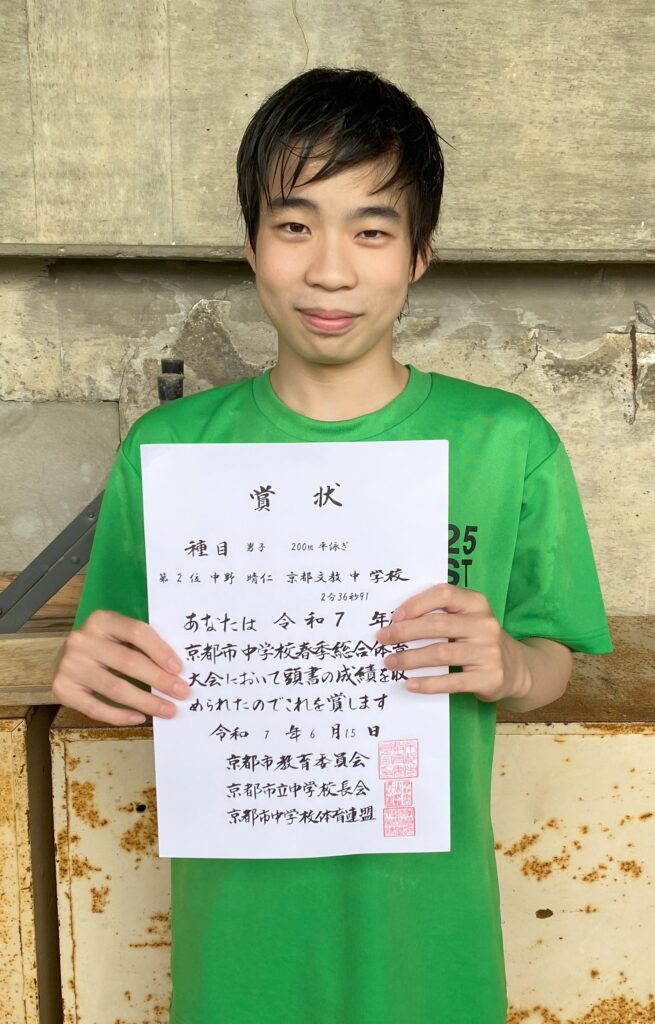 賞 状
種目 男子 200m 平泳ぎ
第 2 位 中野 晴仁 京都文教 中 学校
2分36秒91
あなたは 令 和 7 年
京都市中学校春季総合体育
大会において頭書の成績を収
められたのでこれを賞します
令和 7 年 6 月 15 日
京都市教育委員会
京都市立中学校長会
京都市中学校体育連盟
25
ST